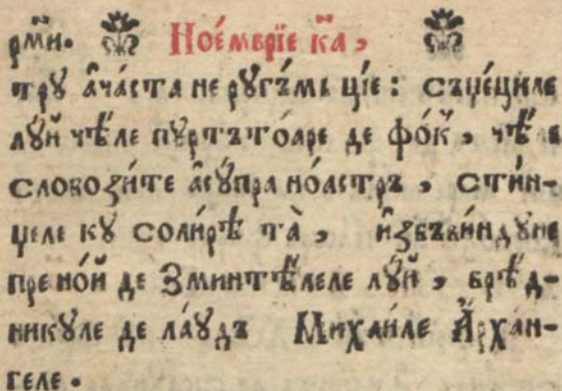 рмй. Ное́мврїе к҃а,
трꙋ а҆ча́ста не рꙋгъ́мь цїе: съцѣциле
лꙋй чѣле пꙋртътоаре де фо́к, чѣле
слобози́те а҆сꙋ́пра но́астръ, сти́н-
џеле кꙋ соли́рѣ та̀, и҆збъви́ндꙋне
пре но́й де Зминтѣ́леле лꙋ́й, врѣ́д-
никꙋле де ла́ꙋдъ Михаи́ле А҆рхан-
геле.